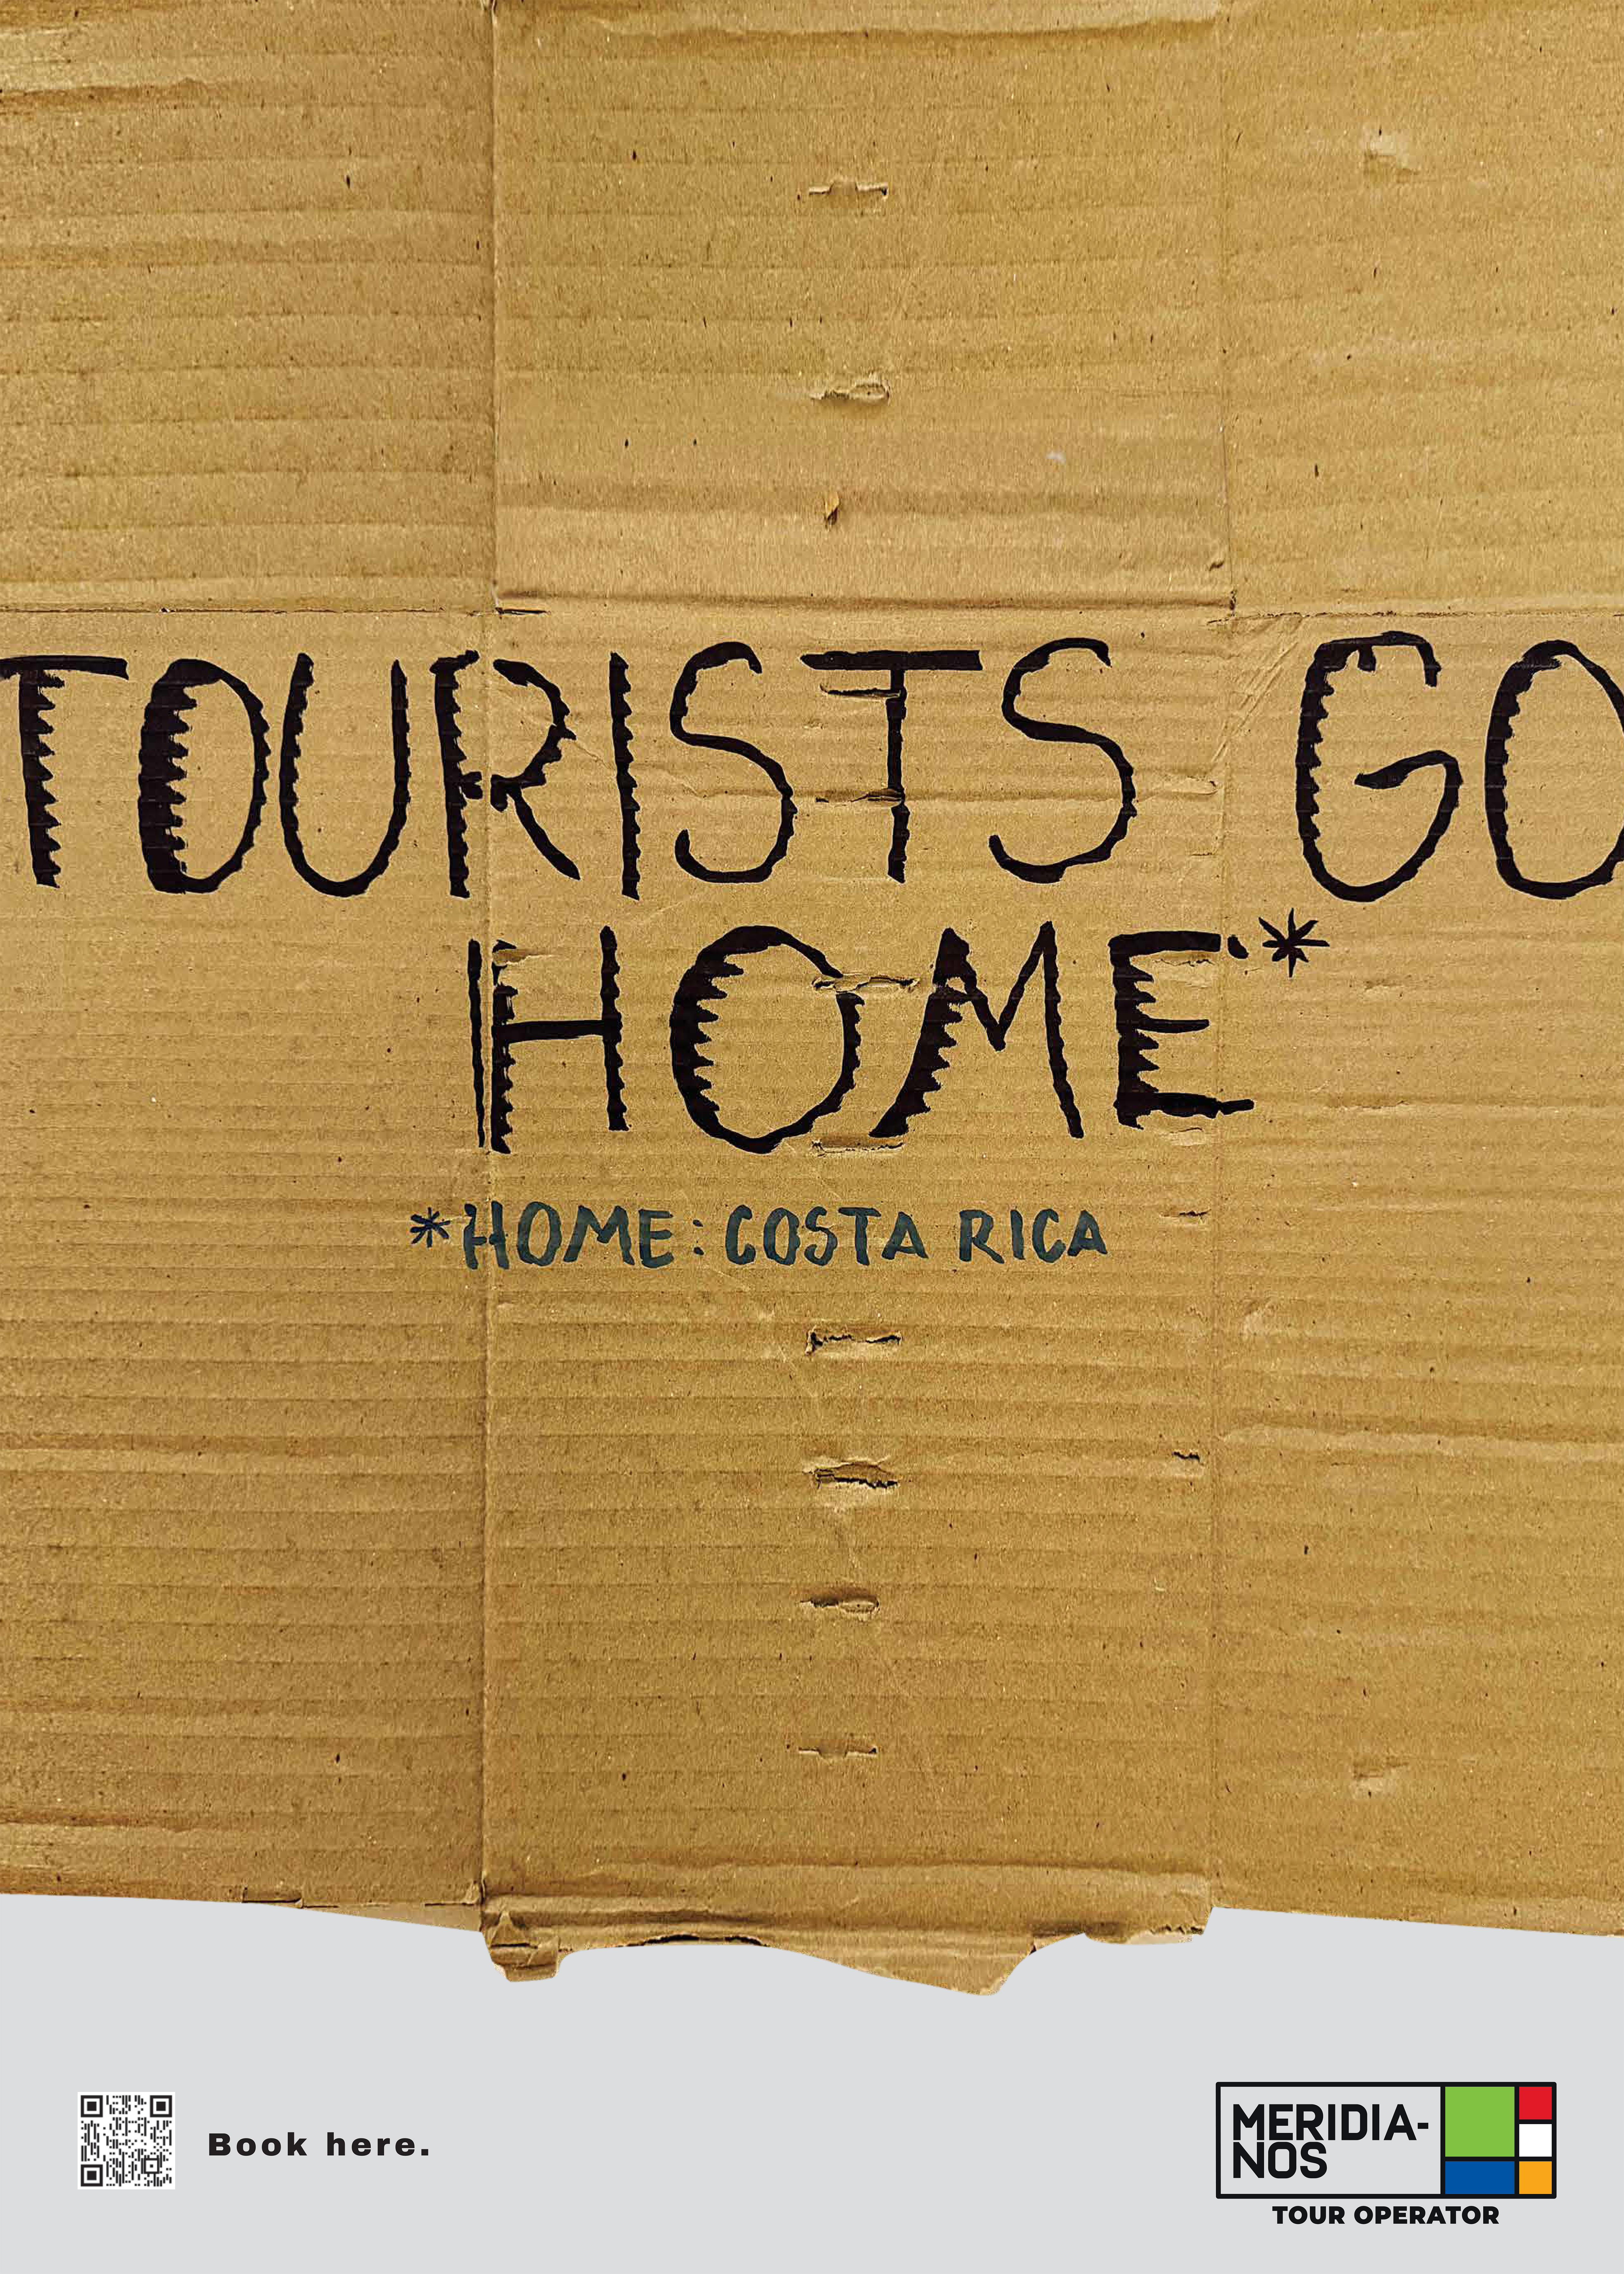 TOURISTS GO
HOME*
*HOME: COSTA RICA
Book here.
MERIDIA-
NOS
TOUR OPERATOR